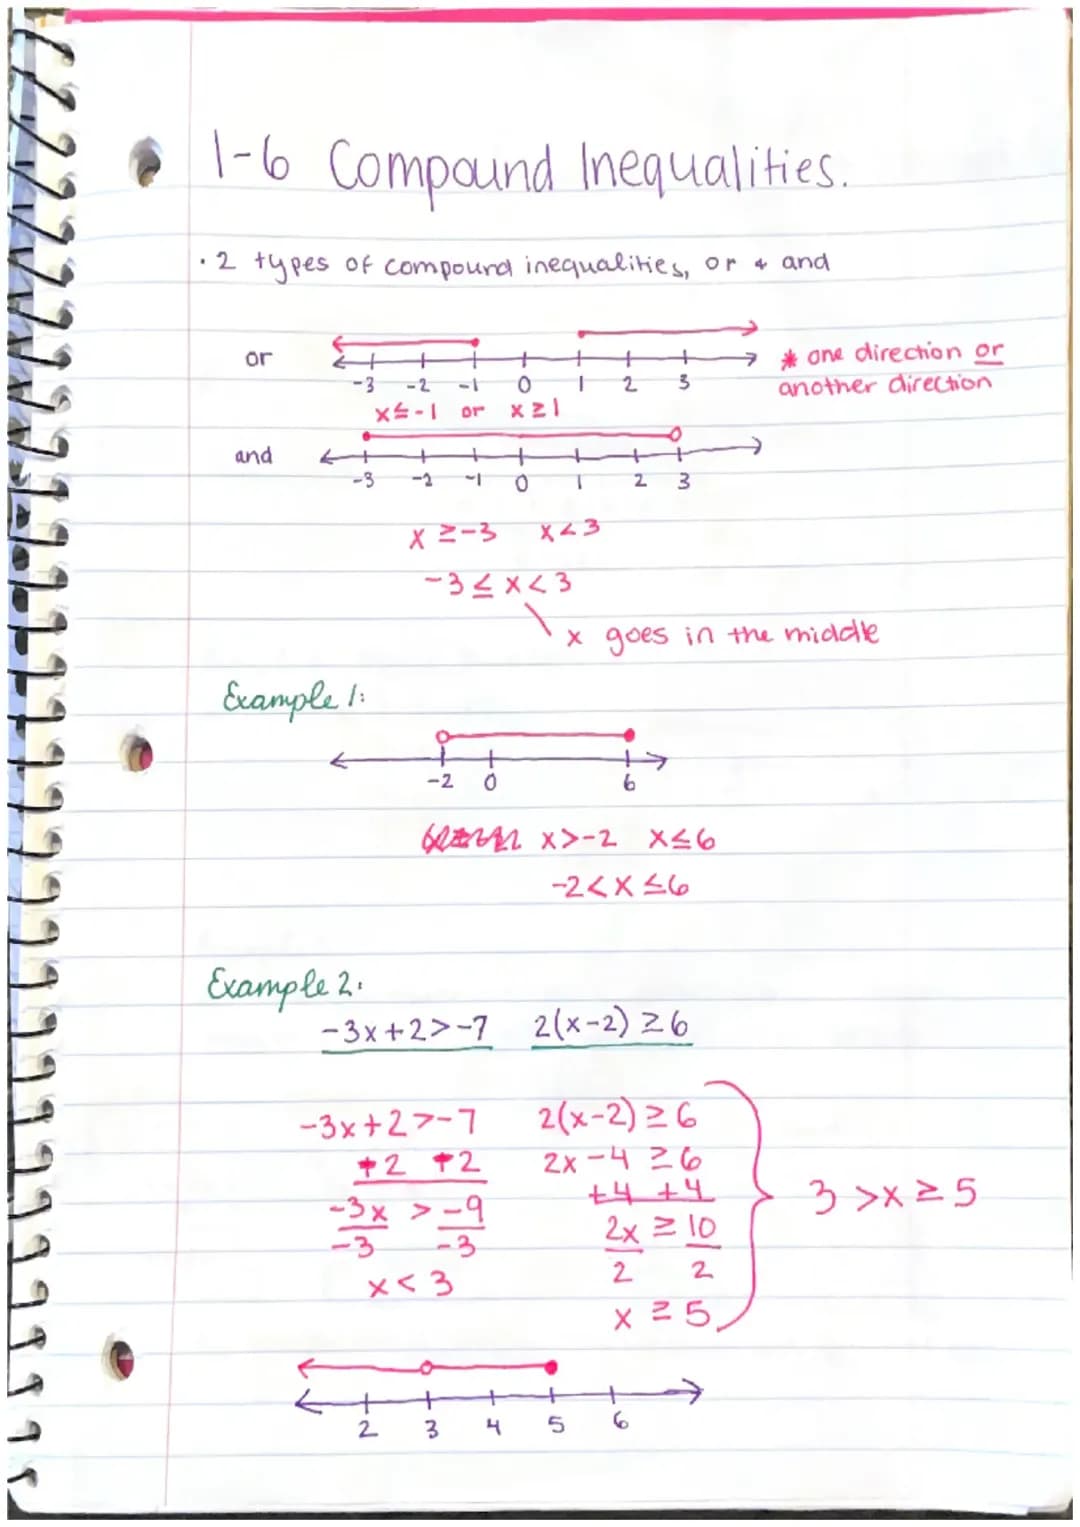 1-6 Compound Inequalities.
· 2 types of compound inequalities, or & and
or
-3 -2 -1 0 1 2 3
* one direction or
another direction
x≤-1 or x≥1
and
-3 -2 -1 0 1 2 3
x≥-3 x<3
-3≤x<3
x goes in the middle
Example 1:
-2 0 6
x>-2 x≤6
-2<x≤6
Example 2:
-3x+2>-7 2(x-2)≥6
-3x+2>-7 2(x-2)≥6
+2 +2 2x-4≥6
+4 +4
-3x > -9 2x ≥ 10
-3 -3 2 2
x<3 x≥5
3 >x≥5
2 3 4 5 6